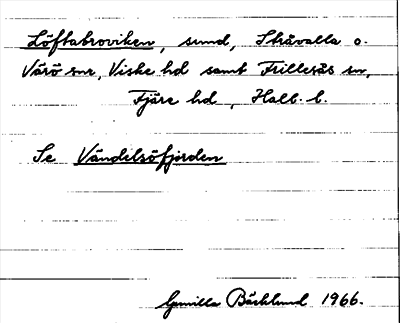 Löftabroviken, sund, Stråvalla o.
Värö snr, Viske hd samt Frillesås sn,
Fjäre hd, Hall. l.
Se Vändelsöfjorden
Gunilla Bäcklund 1966.